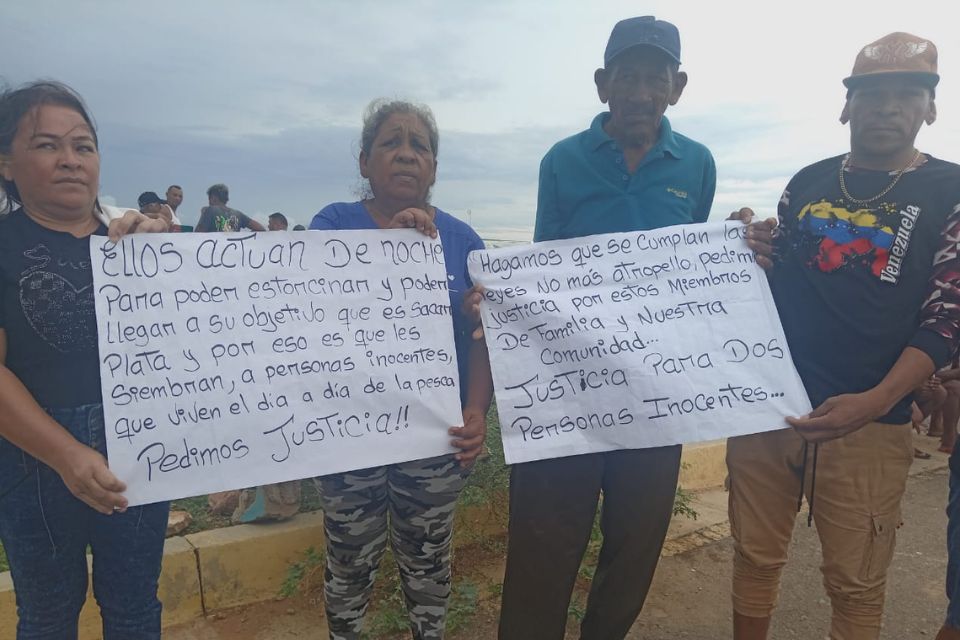 Ellos actuan de noche
Para poder estorcinar y poder
llegar a su objetivo que es Sacar
Plata y por eso es que les
siembran, a personas inocentes,
que viven el dia a día de la pesca
Pedimos Justicia!!
"Hagamos que se cumplan las
leyes no más atropello, pedimos
justicia por estos Miembros
De Familia y Nuestra
Comunidad...
Justicia Para Dos
Personas Inocentes...
Venezuela